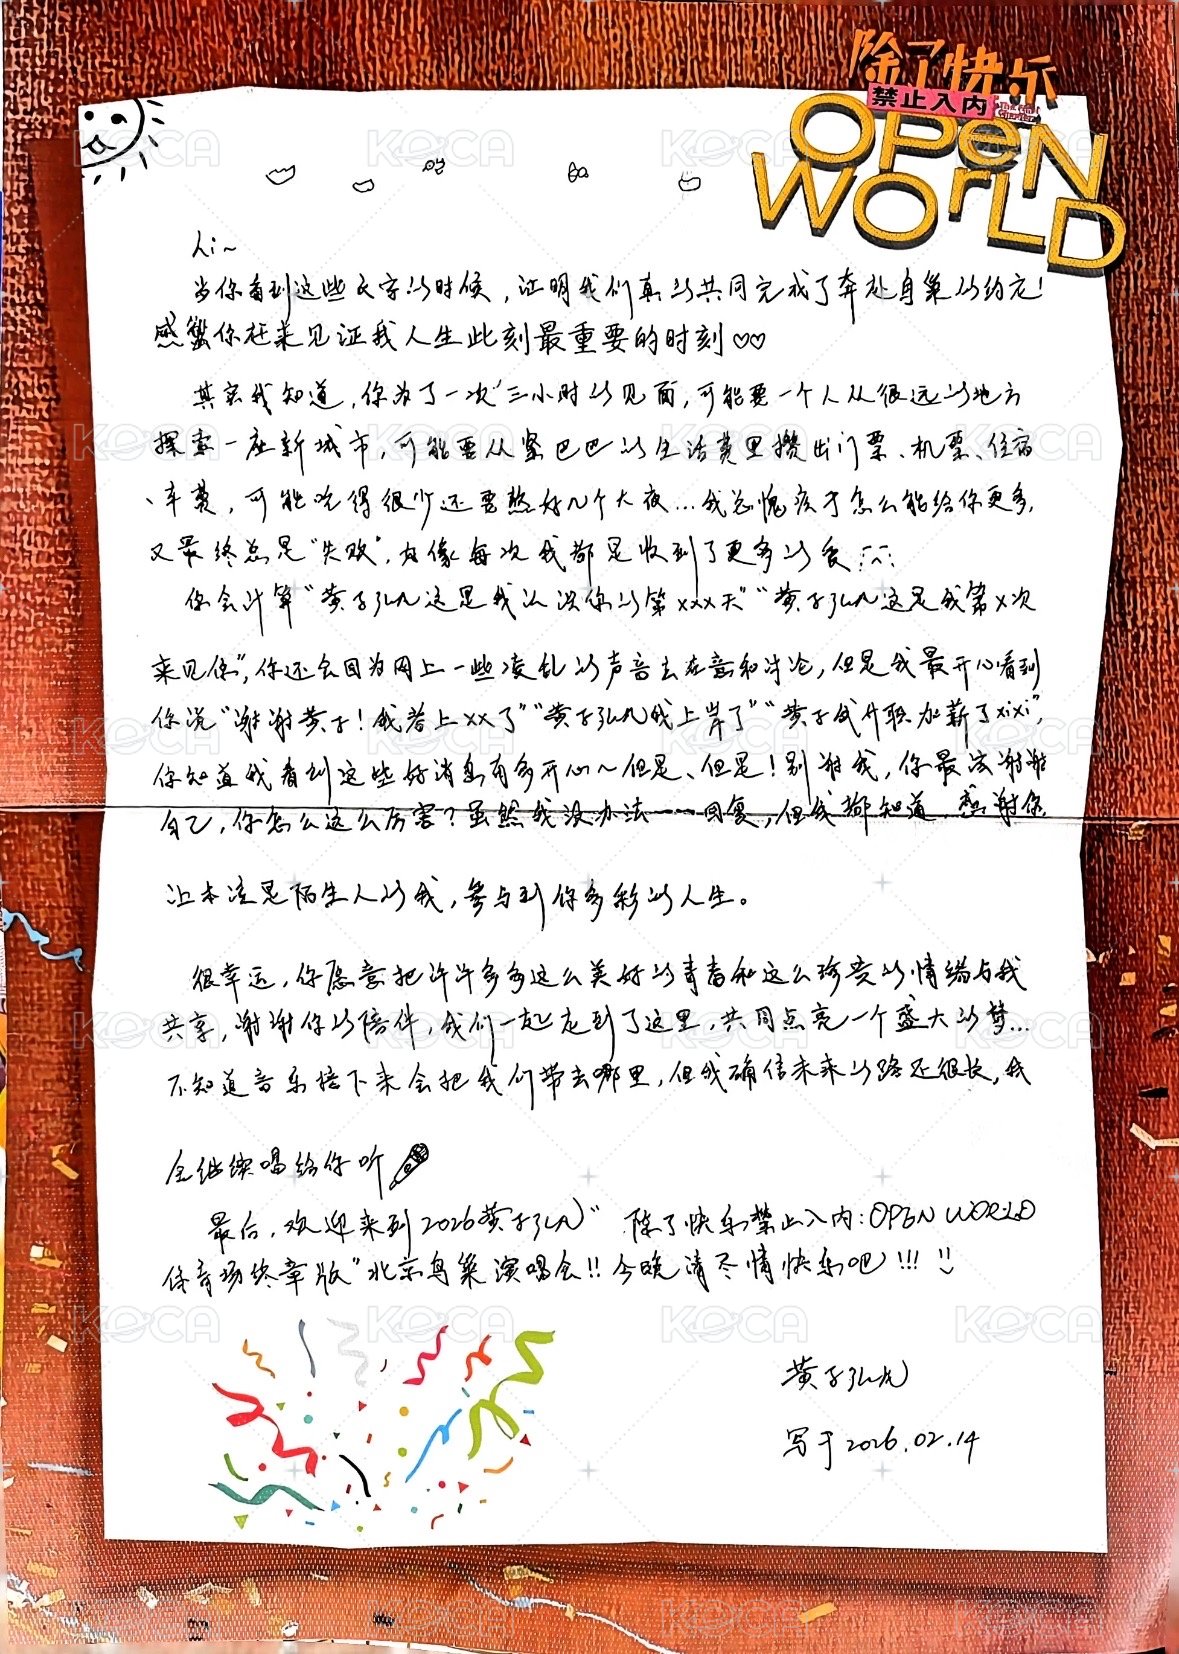 除了快乐
禁止入内
OPEN
WORLD
Hi~
当你看到这些文字的时候，证明我们真的共同完成了奔赴鸟巢的约定！
感谢你赶来见证我人生此刻最重要的时刻♡♡
其实我知道，你为了一次三小时的见面，可能要一个人从很远的地方
探索一座新城市，可能要从紧巴巴的生活费里攒出门票、机票、住宿
、车费，可能吃得很少还要熬好几个大夜…我总愧疚才怎么能给你更多，
又最终总是“失败”，好像每次我都是收到了更多的爱
你会计算“黄子弘凡这是我认识你的第xxx天”“黄子弘凡这是我第x次
来见你”，你还会因为网上一些凌乱的声音去在意和讨论，但是我最开心看到
你说“谢谢黄子！我考上xx了”“黄子弘凡我上岸了”“黄子我升职加薪了xixi”，
你知道我看到这些好消息有多开心~但是、但是！别谢我，你最该谢谢
自己，你怎么这么厉害？虽然我没办法一一回复，但我都知道，感谢你
让本该是陌生人的我，参与到你多彩的人生。
很幸运，你愿意把许许多多这么美好的青春和这么珍贵的情绪与我
共享，谢谢你的陪伴，我们一起走到了这里，共同点亮一个盛大的梦…
不知道音乐接下来会把我们带去哪里，但我确信未来的路还很长，我
会继续唱给你听
最后，欢迎来到2026黄子弘凡“除了快乐禁止入内：OPEN WORLD
体育场终章版”北京鸟巢演唱会!! 今晚请尽情快乐吧!!!
黄子弘凡
写于2026.02.14
KOCA